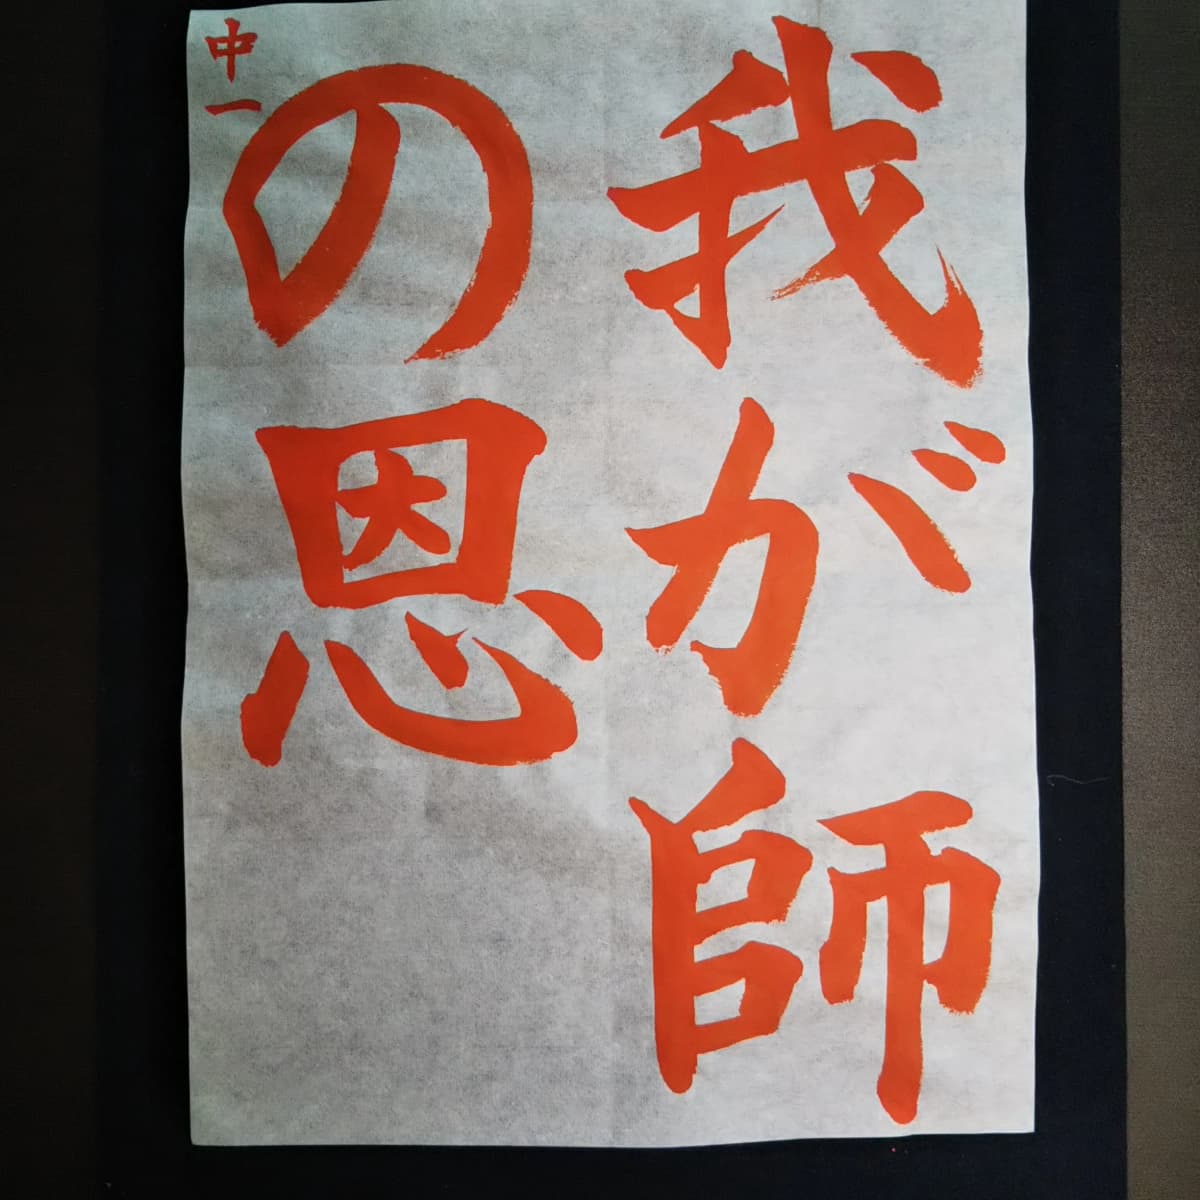 我が師
の恩
中一